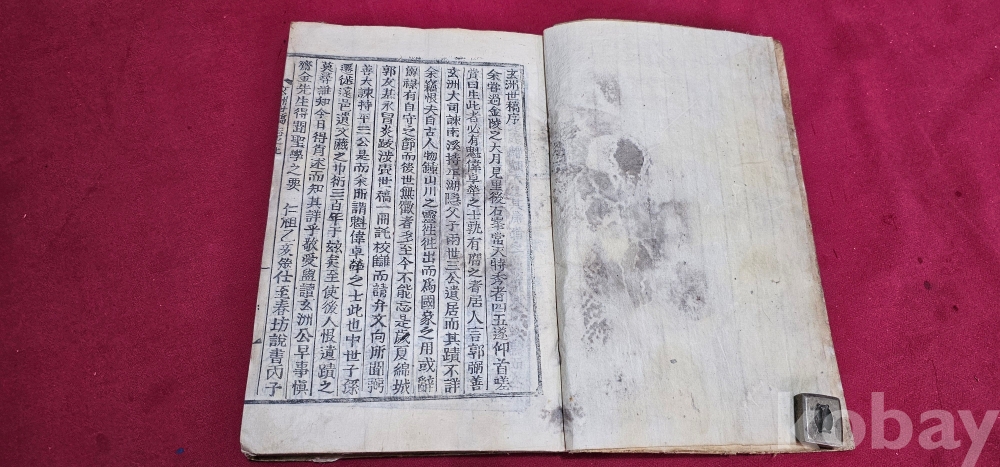 玄洲世稿序
余嘗過金陵之大月見里後石峯當天特秀者四五遂仰首嗟
賞曰生此者必有魁偉卓犖之士孰有膺之者居人言郭弼善
玄洲大司諫南溪持平湖隱父子兩世三公遺居而其蹟不詳
余竊恨夫自古人物鍾山川之靈往往出而爲國家之用或辭
解祿有自守之節而後世無徵者至至今不能忘是歲夏綿城
郭友基永冒炎跋涉齎世稿一冊託校讎而請弁文向所聞弼
善大諫持平三公是而余所謂魁偉卓犖之士此也中世子孫
遷徙遠邑遺文藏之巾衍三百年于玆矣至使後人恨遺蹟之
莫尋誰知今日得肯逑而知其詳乎敬受盥讀玄洲公早事愼
齋金先生得聞聖學之要 仁祖乙亥筮仕至春坊說書丙子
玄洲世稿
kobay